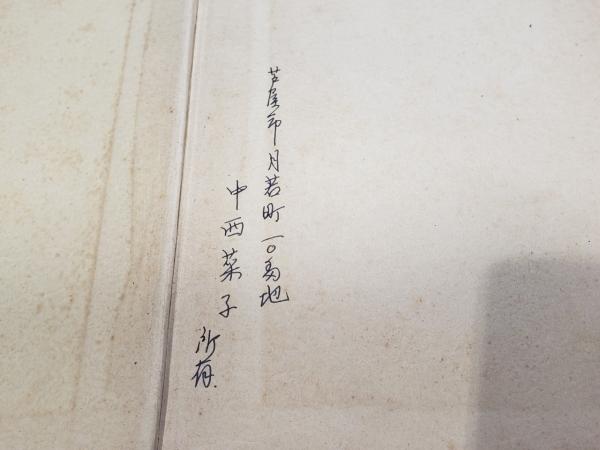 芦屋市月若町一〇番地
中西菜子所有